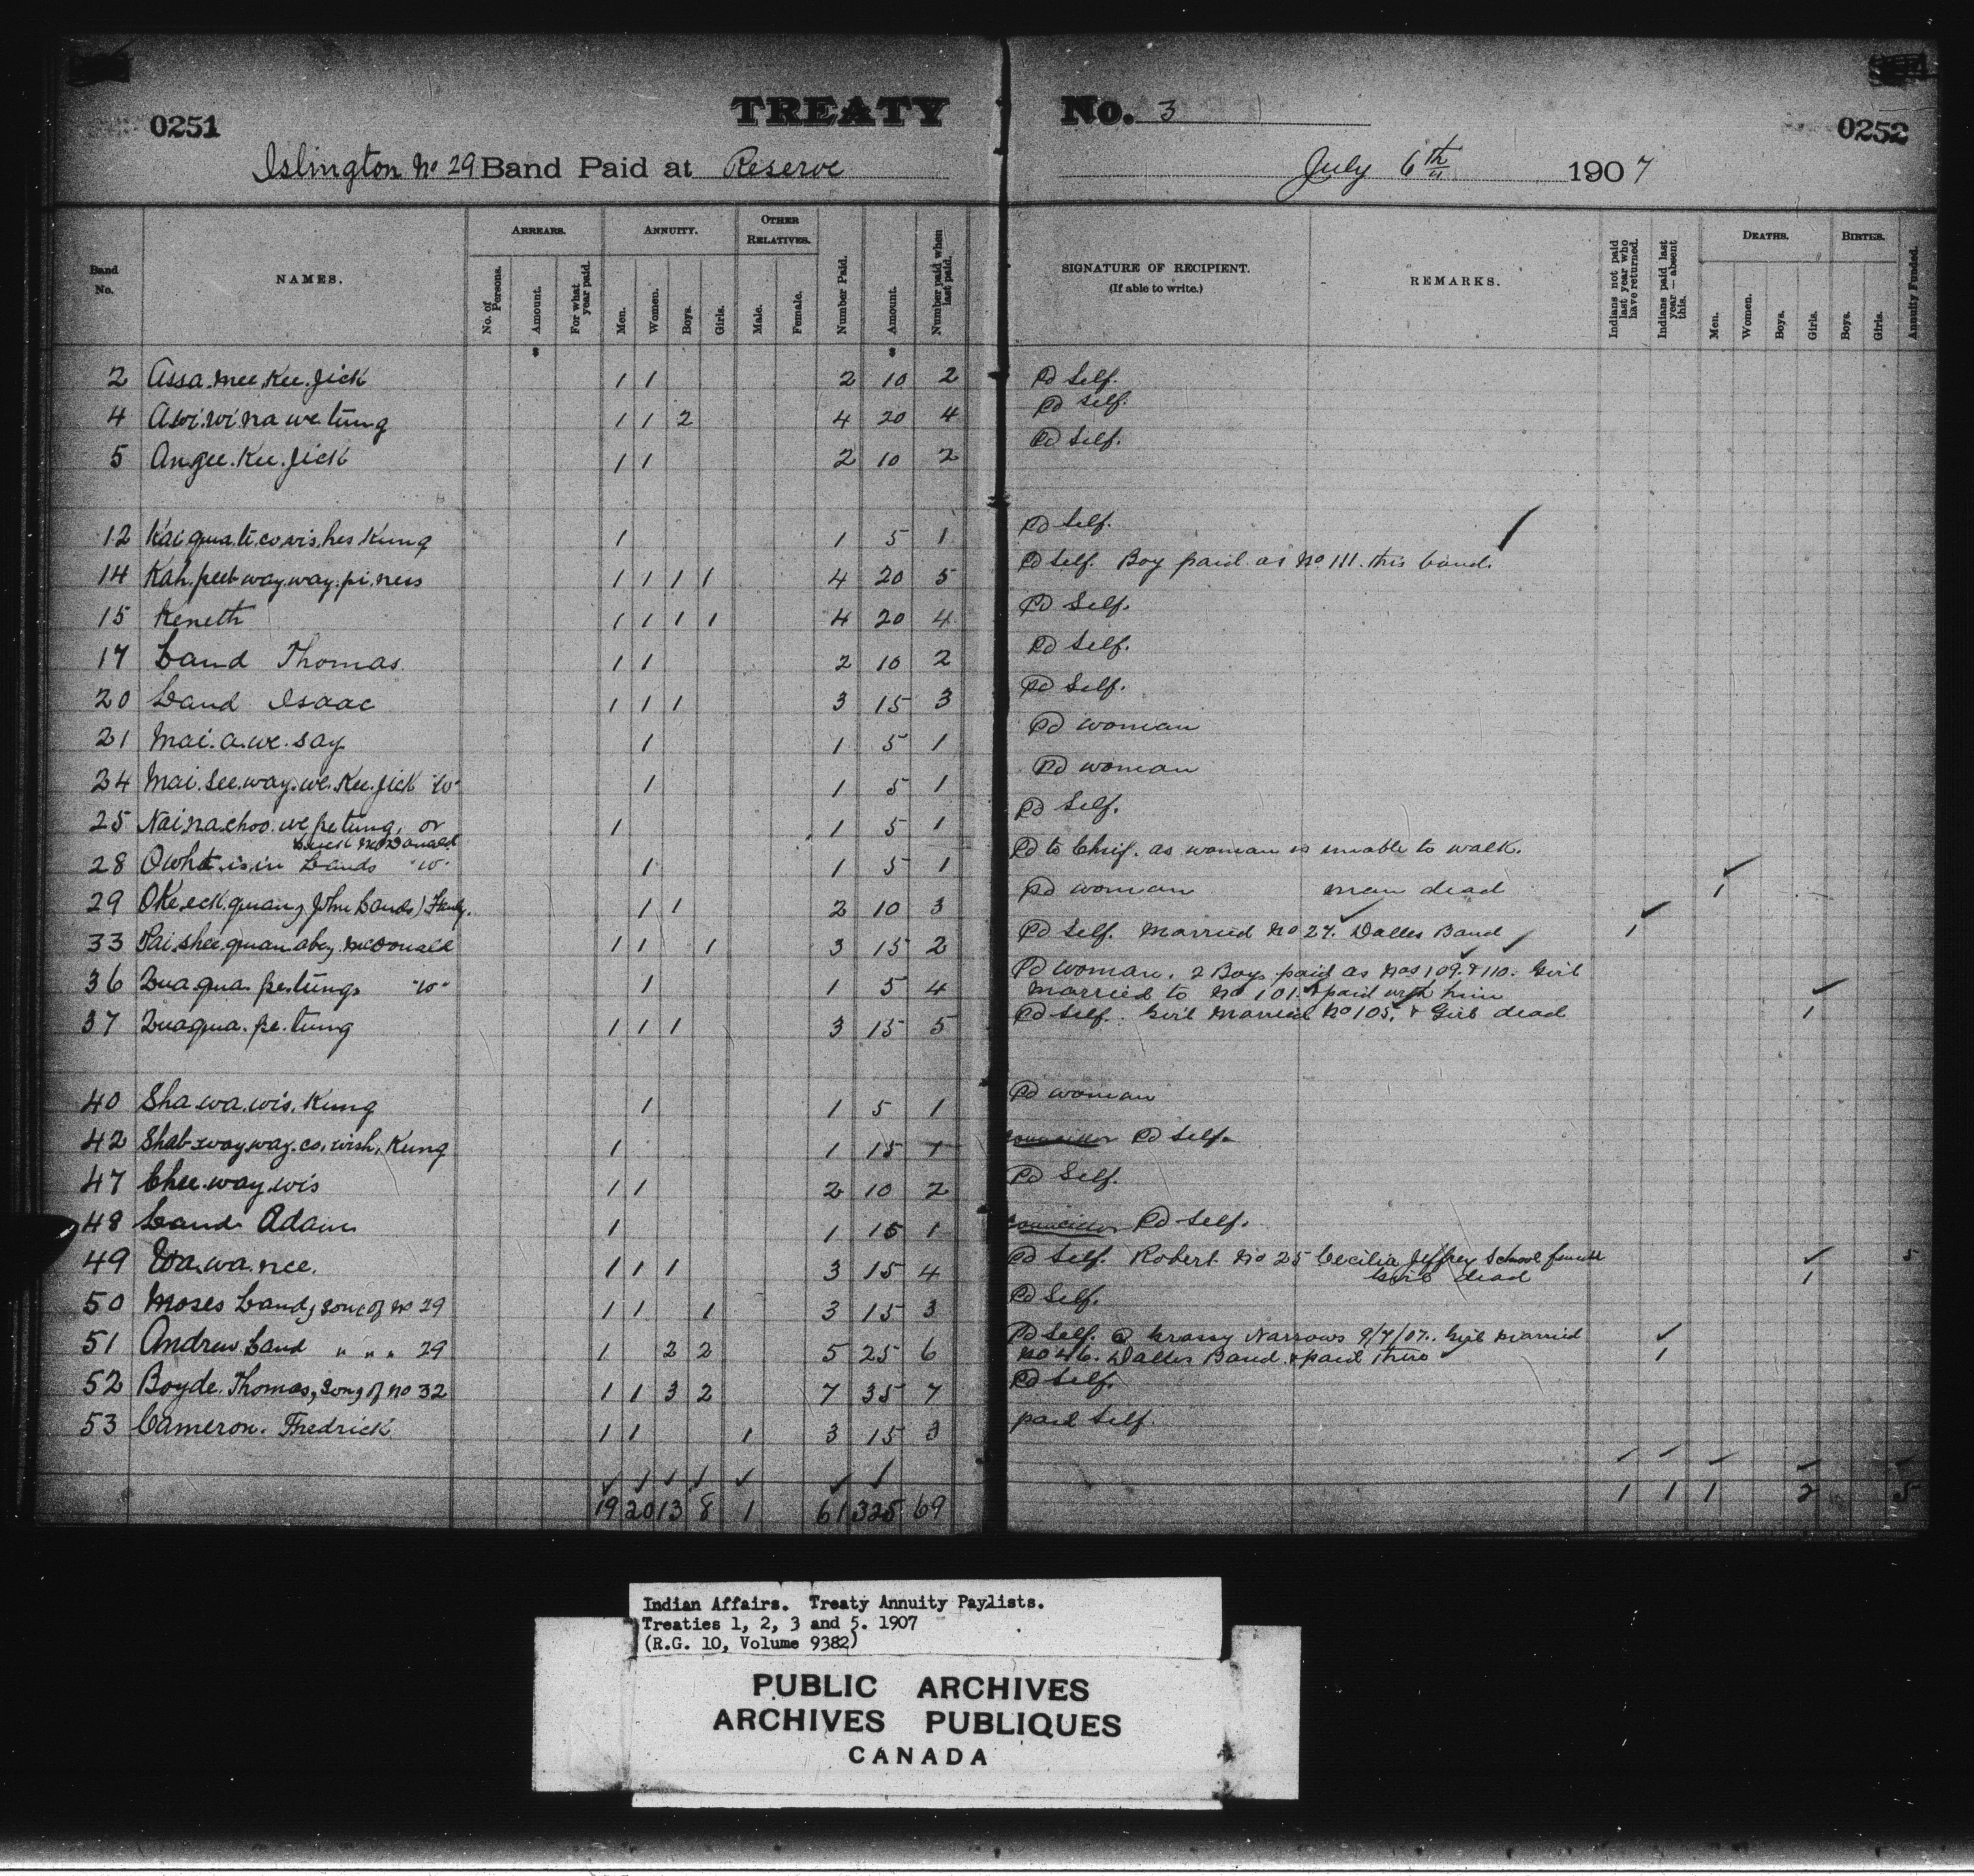 TREATY No. 3
0251
0252
Islington No 29 Band Paid at Reserve July 6th 1907
Band No.
NAMES.
ARREARS.
No. of Persons.
Amount.
For what year paid.
ANNUITY.
Men.
Women.
Boys.
Girls.
OTHER RELATIVES.
Male.
Female.
Number Paid.
Amount.
Number paid when last paid.
SIGNATURE OF RECIPIENT.
(If able to write.)
REMARKS.
Indians not paid last year who have returned.
Indians paid last year — absent this.
DEATHS.
Men.
Women.
Boys.
Girls.
BIRTHS.
Boys.
Girls.
Annuity Funded.
$ $
2 Assa.mee.Kee.Jick 1 1 2 10 2 Pd Self.
4 Awi.wi.na.we.tung 1 1 2 4 20 4 Pd Self.
5 An.gee.Kee.Jick 1 1 2 10 2 Pd Self.
12 Kai.qua.ti.co.wis.hes Kung 1 1 5 1 Pd Self.
14 Kah.peet.way.way.pi.ness 1 1 1 1 4 20 5 Pd Self. Boy paid as No 111. this band.
15 Keneth 1 1 1 1 4 20 4 Pd Self.
17 Land Thomas 1 1 2 10 2 Pd Self.
20 Land Isaac 1 1 1 3 15 3 Pd Self.
21 Mai.a.we.say 1 1 5 1 Pd woman
24 Mai.see.way.we.Kee.Jick "W" 1 1 5 1 Pd woman
25 Nai.na.choo.we.pe.tung, or 1 1 5 1 Pd Self.
McDonald
28 Owht.is.in Lands "W" 1 1 5 1 Pd to Chief. as woman is unable to walk.
29 OKe.eck.quan, John Lands) Family. 1 1 2 10 3 Pd woman man dead 1
33 Pai.shee.quan.abey McDonald 1 1 1 3 15 2 Pd Self. Married No 27. Dalles Band 1
36 Quaqua.pe.tungs "W" 1 1 5 4 Pd woman. 2 Boys paid as Nos 109. & 110. Girl
married to No 101. & paid with him
37 Quaqua.pe.tung 1 1 1 3 15 5 Pd Self. Girl Married No 105. & Girl dead 1
40 Sha.wa.wis.Kung 1 1 5 1 Pd woman
42 Shab.way.way.co.wish.Kung 1 1 15 1 Councillor Pd Self.
47 Chee.way.wis 1 1 2 10 2 Pd Self.
48 Land Adam 1 1 15 1 Councillor Pd Self.
49 Wa.wa.nee. 1 1 1 3 15 4 Pd Self. Robert No 25 Cecilia Jeffrey School 5
Girl dead 1
50 Moses Land, son of No 29 1 1 1 3 15 3 Pd Self.
51 Andrew Land " " " 29 1 2 2 5 25 6 Pd Self. @ Grassy Narrows 9/7/07. Girl Married
No 46. Dalles Band & paid there 1
52 Boyde. Thomas, Son of No 32 1 1 3 2 7 35 7 Pd Self.
53 Cameron. Fredrick 1 1 1 3 15 3 paid Self.
19 20 13 8 1 61 325 69 1 1 1 2 5
Indian Affairs. Treaty Annuity Paylists.
Treaties 1, 2, 3 and 5. 1907
(R.G. 10, Volume 9382)
PUBLIC ARCHIVES
ARCHIVES PUBLIQUES
CANADA